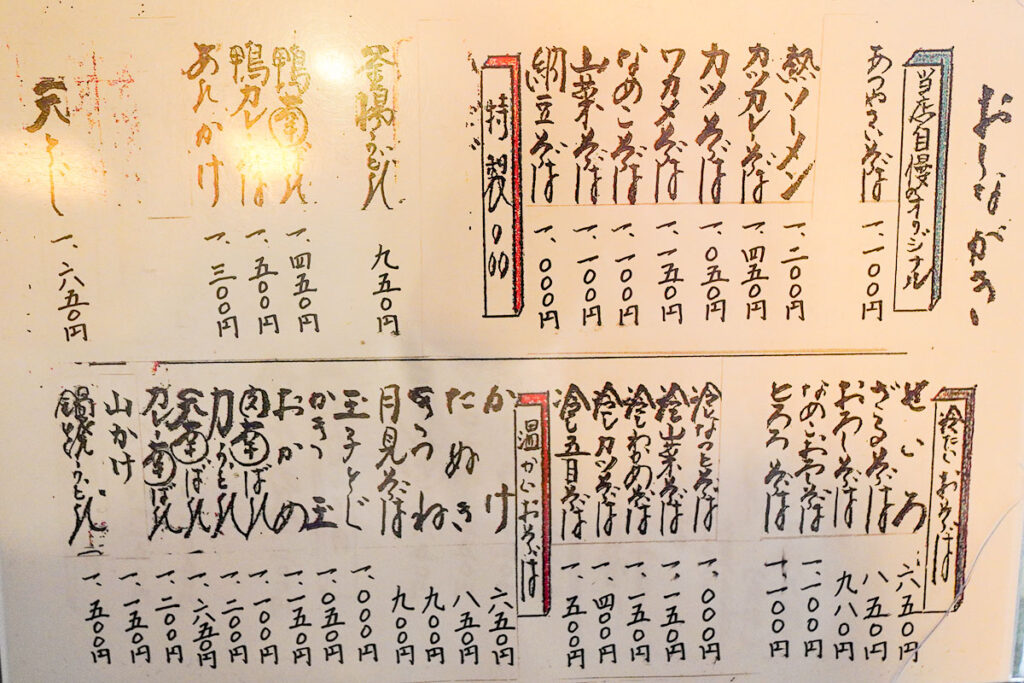 おしながき
当店自慢のオリジナル
あつやさいそば 一、一〇〇円
熱ソーメン 一、二〇〇円
カツカレーそば 一、四五〇円
カツそば 一、〇五〇円
ワカメそば 一、一五〇円
なめこそば 一、一〇〇円
山菜そば 一、一〇〇円
納豆そば 一、〇〇〇円
特製
釜揚うどん 九五〇円
鴨南ばん 一、四五〇円
鴨カレーそば 一、五〇〇円
あんかけ 一、三〇〇円
天とじ 一、六五〇円
冷たいおそば
せいろ 六五〇円
ざるそば 八五〇円
おろしそば 九八〇円
なめこおろしそば 一、二〇〇円
とろろそば 一、一〇〇円
冷なっとそば 一、〇〇〇円
冷山菜そば 一、一五〇円
冷わかめそば 一、一五〇円
冷カツそば 一、四〇〇円
冷五目そば 一、五〇〇円
温かいおそば
かけ 六五〇円
たぬき 八五〇円
きつね 九〇〇円
月見そば 九〇〇円
玉子とじ 一、〇〇〇円
かき玉 一、〇五〇円
おかめ 一、一五〇円
肉南ばん 一、一〇〇円
力うどん 一、二〇〇円
天南ばん 一、六五〇円
カレー南ばん 一、二〇〇円
山かけ 一、一五〇円
鍋焼うどん 一、五〇〇円